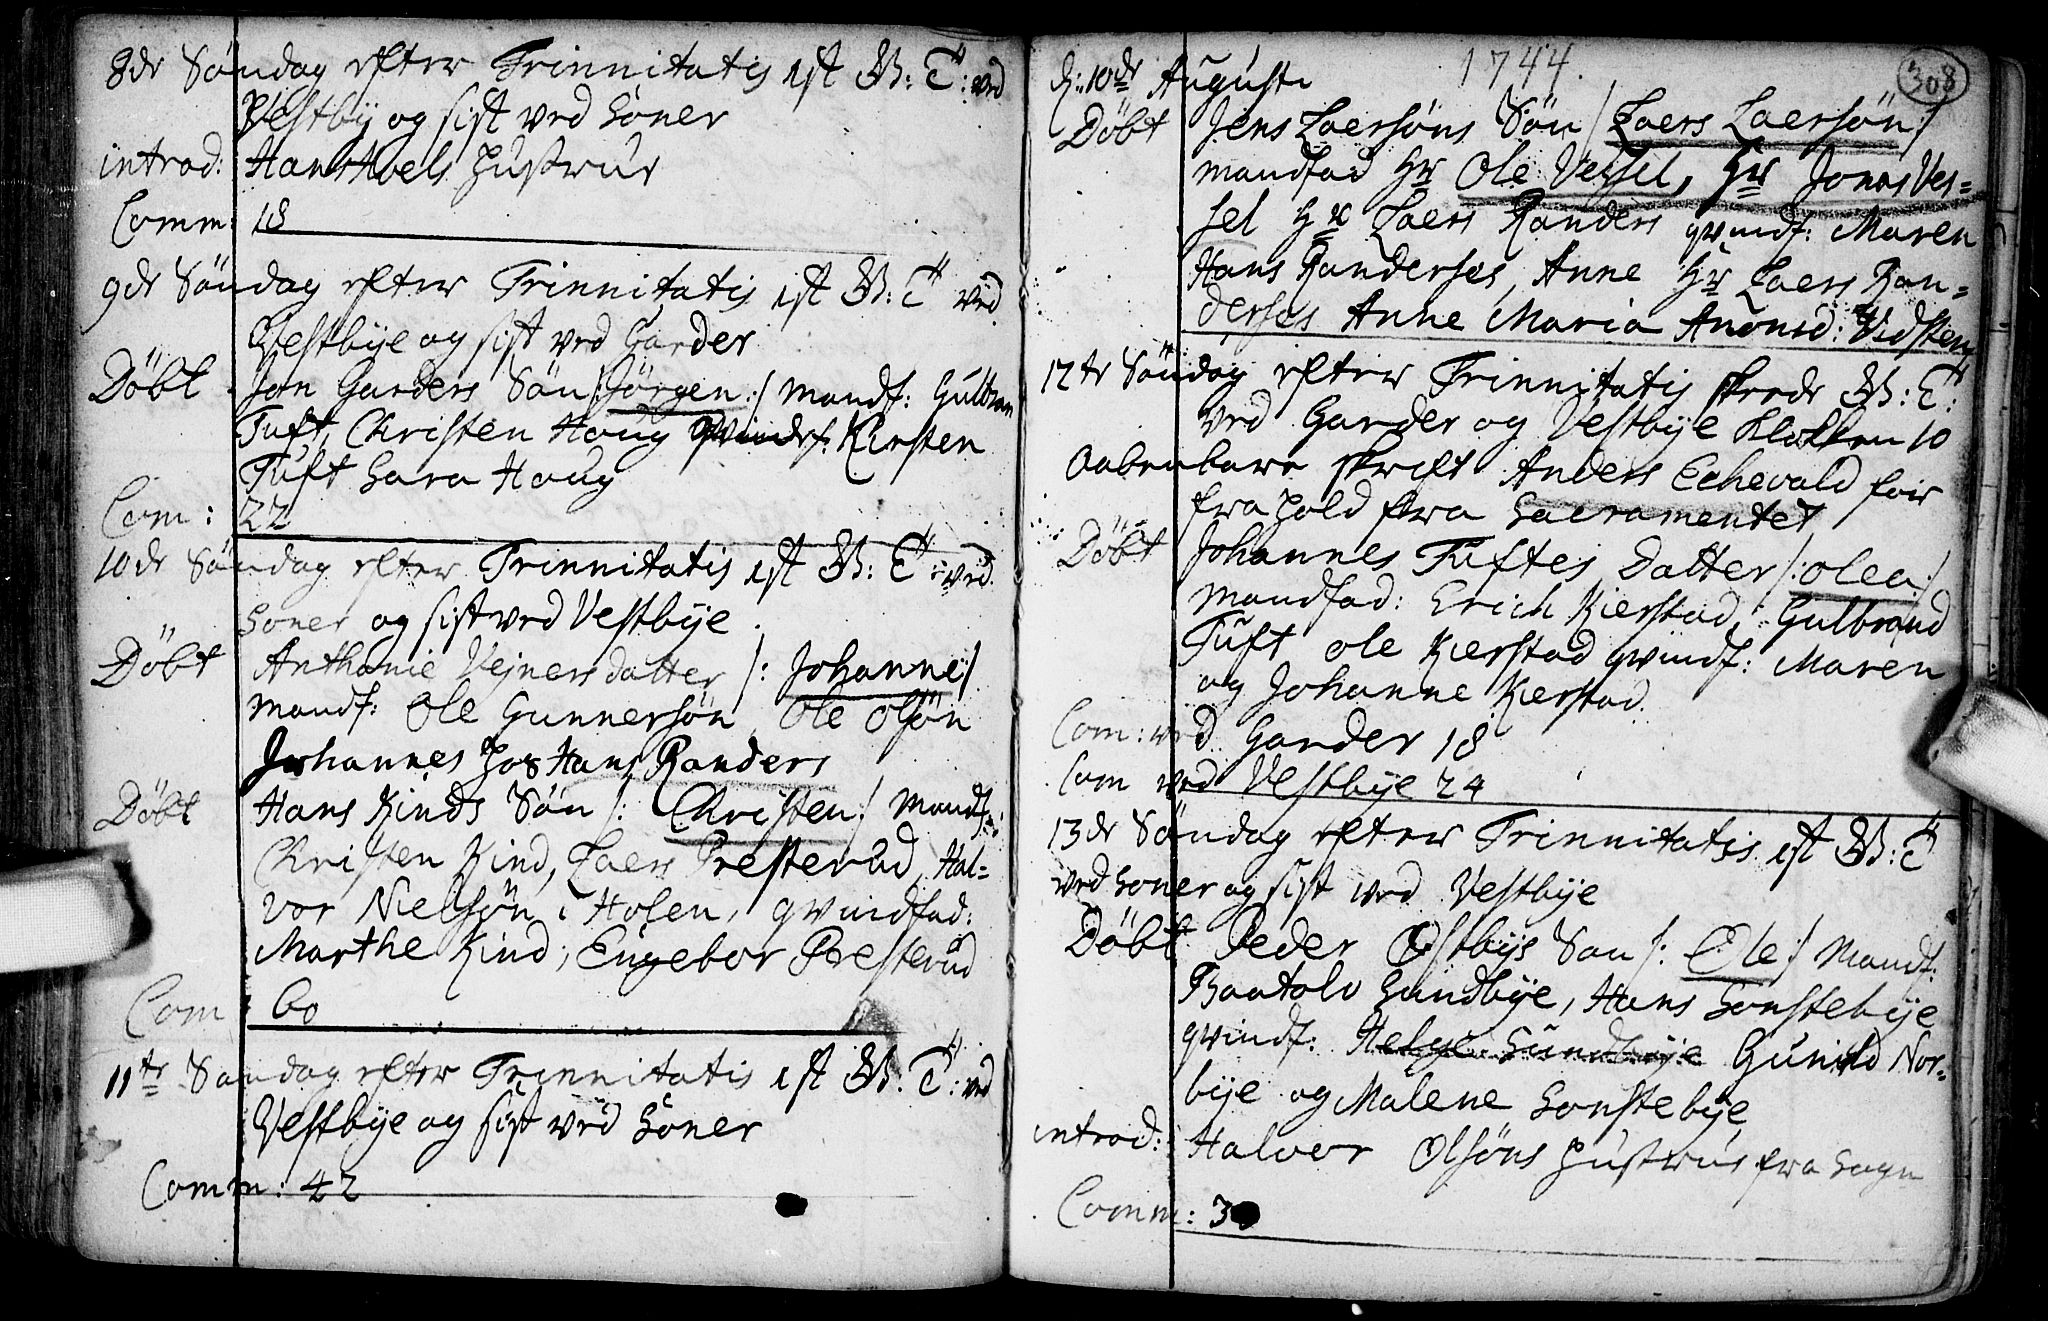 8de Söndag efter Trinnitatis est B: T: ved
Vestby og sist ved Soner
introd: Hans Hoels Hustrue
Comm: 18
9de Söndag efter Trinnitatis est B: T ved
Vestbye og sist ved Garder
Döbt Jan Garders Sön /: Jörgen :/ mandf: Gulbran
Tuft, Christen Haug Qvindf: Kirsten
Tuft Sara Haug
Com: 22
10de Söndag efter Trinnitatis est B: T: ved
Soner og sist ved Vestbye
Döbt Anthonie Vejners datter /: Johanne :/
mandf: Ole Gunnersön, Ole Olsön
Johannes Hos Hans Randers
Döbt Hans Kinds Sön /: Christen :/ Mandf:
Christen Kind, Laers Presterud, Hal=
vor Nielsön i Holen, qvindfad:
Marthe Kind, Engebor Presterud
Com: 60
11te Söndag efter Trinnitatis est B: T: ved
Vestbye og sist ved Soner
Comm: 42
1744.
308
d: 10de Augusti
Döbt Jens Laersöns Sön /: Laers Laersön :/
mandfad Hr Ole Vessel, Hr Jonas Ves=
sel Hr Laers Randers qvindf: Maren
Hans Randerses, Anne Hr Laers Ran=
derses Anne Maria Anonsd: Vidsteen
12te Söndag efter Trinnitatis skrede B: T:
ved Garder og Vestbye Klokken 10
Aabenbare skrift Anders Echevald for
fra hold fra Sacramentet
Döbt Johannes Tuftes Datter /: olea :/
Mandfad: Erich Kierstad, Gulbrand
Tuft ole Kierstad qvindf: Maren
og Johanne Kierstad
Com: ved Garder 18
Com ved Vestbye 24
13de Söndag efter Trinnitatis est B: T
ved Soner og sist ved Vestbye
Döbt Peder Östbys Son /: Ole :/ Mandf:
Baatolv Sundbye, Hans Sonstebye
qvindf: Helge Sundbye Gunild Nor=
bye og Malene Sonstebye
introd: Halvor Olsöns Hustrue fra Sogn
Comm: 3